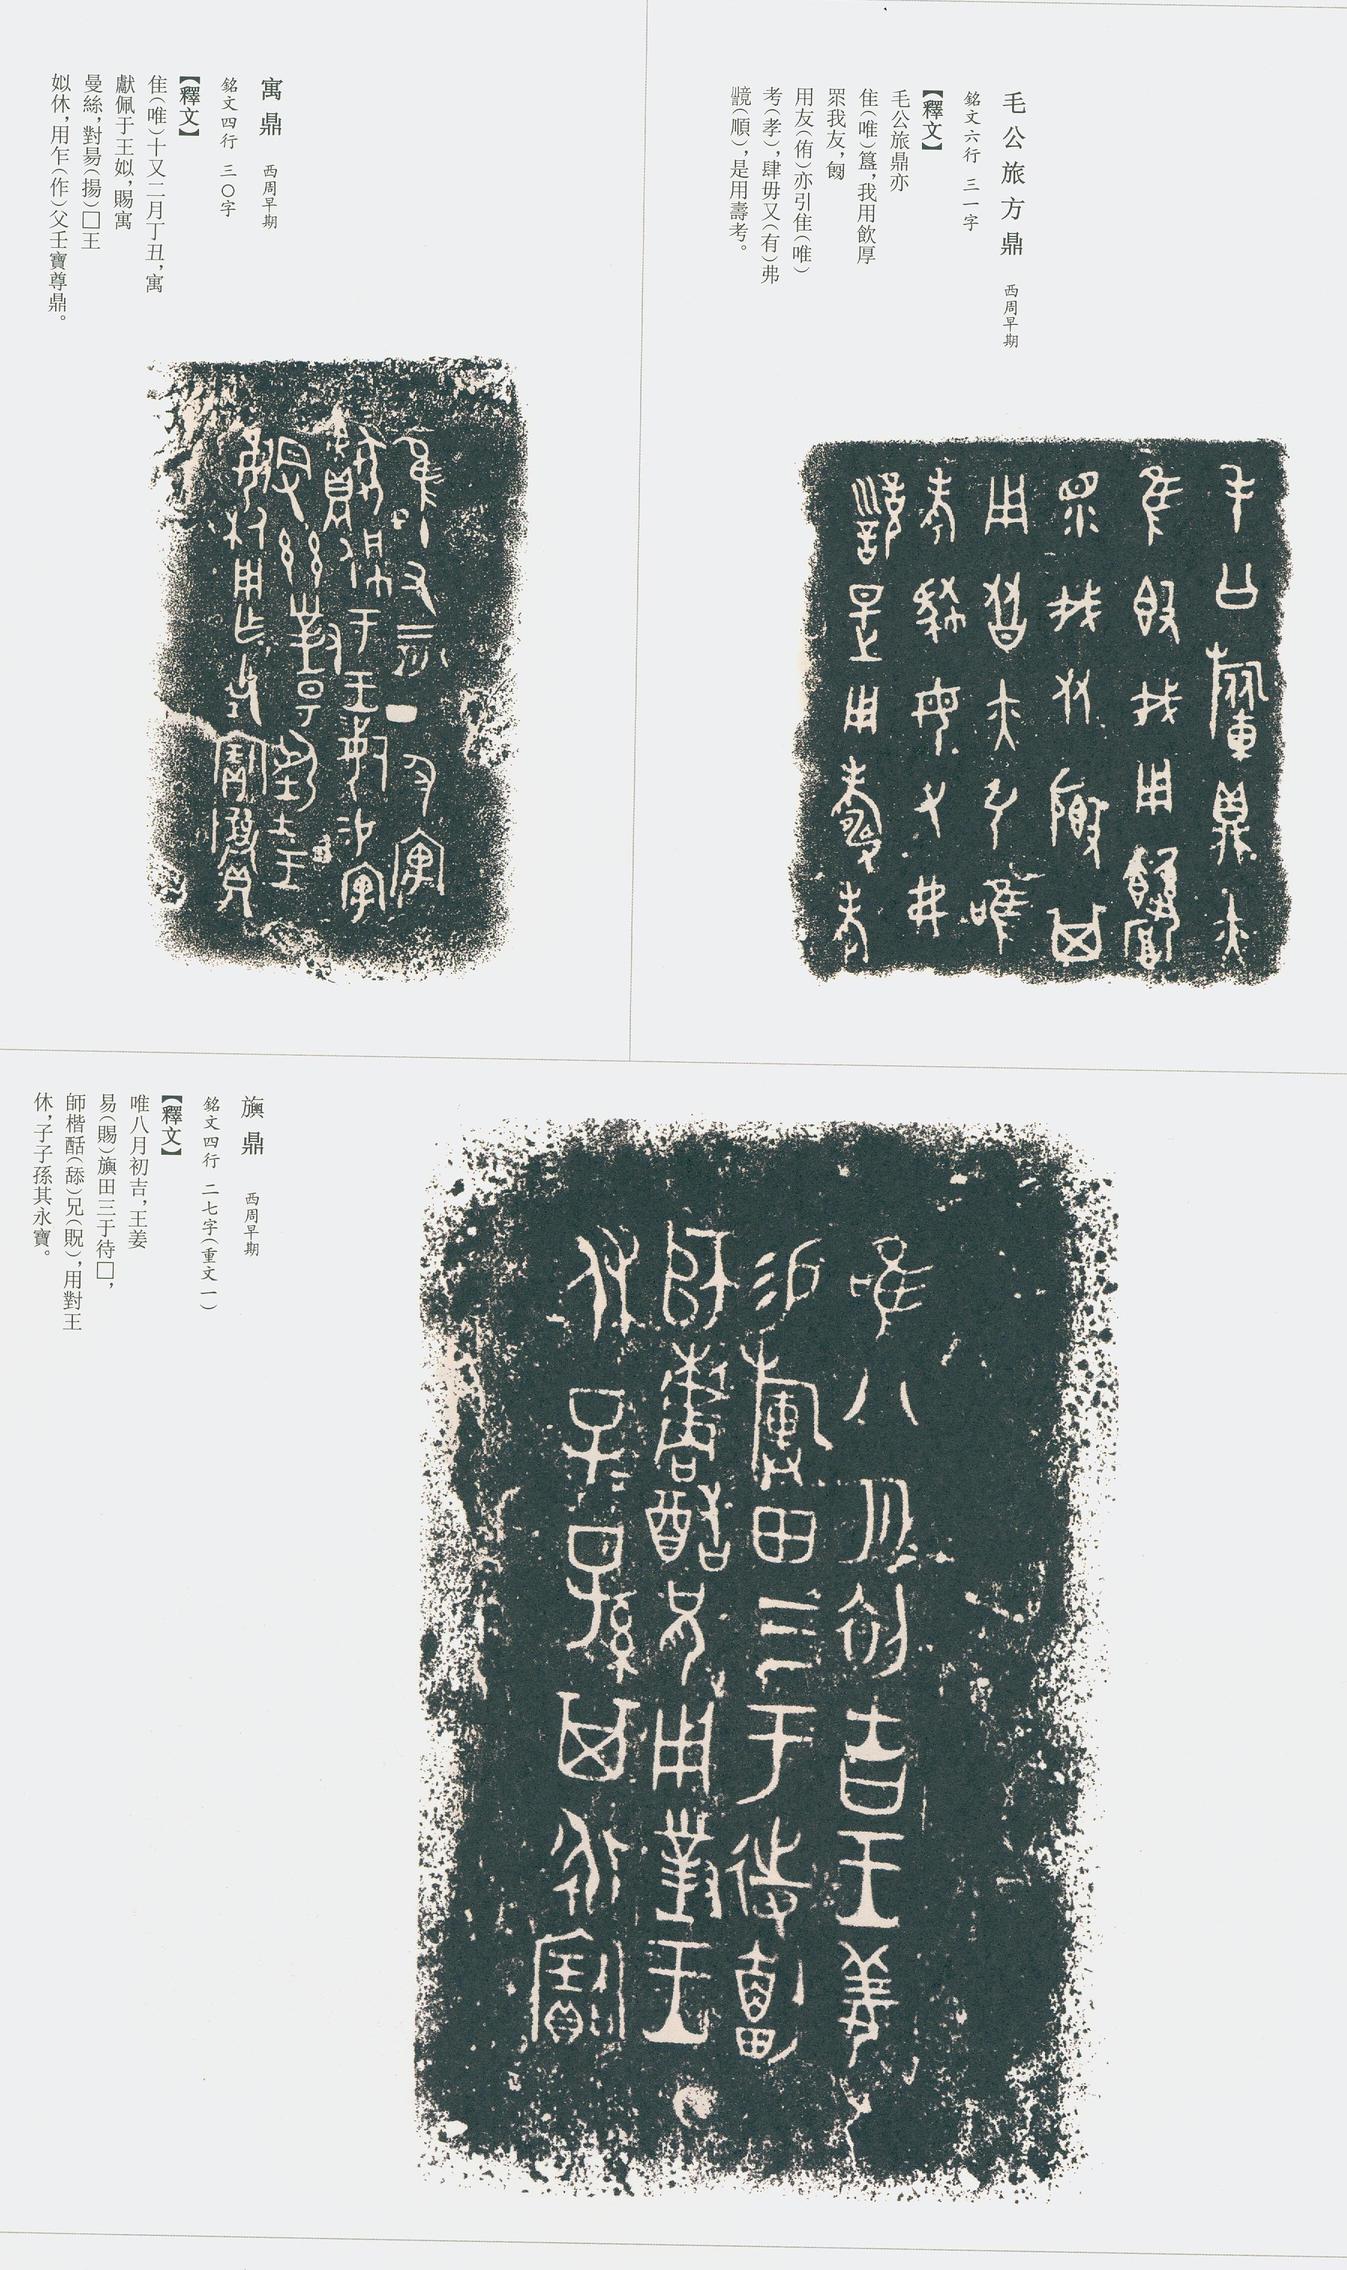 毛公旅方鼎 西周早期
銘文六行 三一字
【釋文】
毛公旅鼎亦
隹（唯）簋，我用飲厚
眔我友，匓
用友（侑）亦引隹（唯）
考（孝），肆毋又（有）弗
（順），是用壽考。
寓鼎 西周早期
銘文四行 三〇字
【釋文】
隹（唯）十又二月丁丑，寓
獻佩于王姒，賜寓
曼絲，對昜（揚）□王
姒休，用乍（作）父壬寶尊鼎。
旟鼎 西周早期
銘文四行 二七字（重文一）
【釋文】
唯八月初吉，王姜
易（賜）旟田三于待□，
師楷酷（舔）兄（貺），用對王
休，子子孫其永寶。